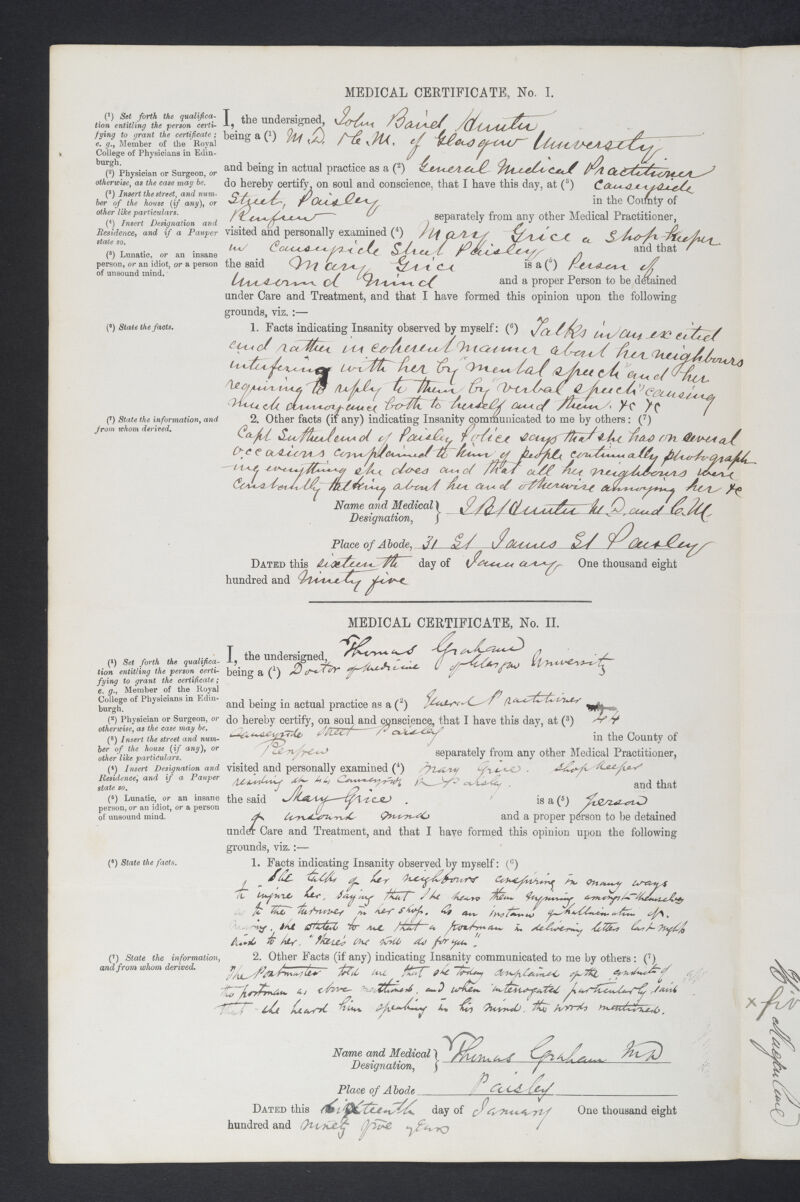 MEDICAL CERTIFICATE, No. I.
(1) Set forth the qualifica-
tion entitling the person certi-
fying to grant the certificate;
e. g., Member of the Royal
College of Physicians in Edin-
burgh.
(2) Physician or Surgeon, or
otherwise, as the case may be.
(3) Insert the street, and num-
ber of the house (if any), or
other like particulars.
(4) Insert Designation and
Residence, and if a Pauper
state so.
(5) Lunatic, or an insane
person, or an idiot, or a person
of unsound mind.
I, the undersigned, John Baird Hunter
being a (1) M.D. & C.M. of Glasgow University
and being in actual practice as a (2) General Medical Practitioner
do hereby certify, on soul and conscience, that I have this day, at (3) Causeyside
Street, Paisley in the County of
Renfrew separately from any other Medical Practitioner,
visited and personally examined (4) Mary Grice a Shop Keeper
in Causeyside Street Paisley and that
the said Mary Grice is a (5) Person of
Unsound Mind and a proper Person to be detained
under Care and Treatment, and that I have formed this opinion upon the following
grounds, viz. :—
(6) State the facts.
1. Facts indicating Insanity observed by myself: (6) Talks in an excited
and rather incoherent manner about her neighbours
interfering with her by "mental speech" and her
requiring to reply to them by "verbal speech" causing
much annoyance both to herself and them. &c &c
(7) State the information, and
from whom derived.
2. Other facts (if any) indicating Insanity communicated to me by others: (7)
Capt Sutherland of Paisley Police says that she has on several
occasions complained to him of people continually photograph-
-ing everything she does and that all her neighbours were
constantly talking about her and otherwise annoying her &c
Name and Medical Designation, J B Hunter M.D. and C.M.
Place of Abode, 31 St James St Paisley
DATED this sixteenth day of January One thousand eight
hundred and Ninety five
MEDICAL CERTIFICATE, No. II.
(1) Set forth the qualifica-
tion entitling the person certi-
fying to grant the certificate;
e. g., Member of the Royal
College of Physicians in Edin-
burgh.
(2) Physician or Surgeon, or
otherwise, as the case may be.
(3) Insert the street and num-
ber of the house (if any), or
other like particulars.
(4) Insert Designation and
Residence, and if a Pauper
state so.
(5) Lunatic, or an insane
person, or an idiot, or a person
of unsound mind.
I, the undersigned, Thomas Graham
being a (1) Doctor of Medicine of Glasgow University
and being in actual practice as a (2) General Practitioner
do hereby certify, on soul and conscience, that I have this day, at (3) 44
Causeyside Street Paisley in the County of
Renfrew separately from any other Medical Practitioner,
visited and personally examined (4) Mary Grice. Shop Keeper
residing at 44 Causeyside Paisley. and that
the said Mary Grice. is a (5) person
of unsound mind and a proper person to be detained
under Care and Treatment, and that I have formed this opinion upon the following
grounds, viz. :—
(6) State the facts.
1. Facts indicating Insanity observed by myself: (6)
She talks of her neighbours conspiring in many ways
to injure her, saying that she hears them enquiring amongst themselves
as to the turnover in her shop. As an instance of hallucination of
hearing, she stated to me that a postman in delivering letters last night
said to her, "There's one will do for you".
(7) State the information,
and from whom derived.
2. Other Facts (if any) indicating Insanity communicated to me by others: (7)
The Postmaster told me that she today complained of the conduct of
the postman as above mentioned, and when interrogated particularly said
that she heard him speaking in his mind, the words mentioned.
Name and Medical Designation, Thomas Graham MD
Place of Abode Paisley
DATED this sixteenth day of January One thousand eight
hundred and ninety five years
x fiv